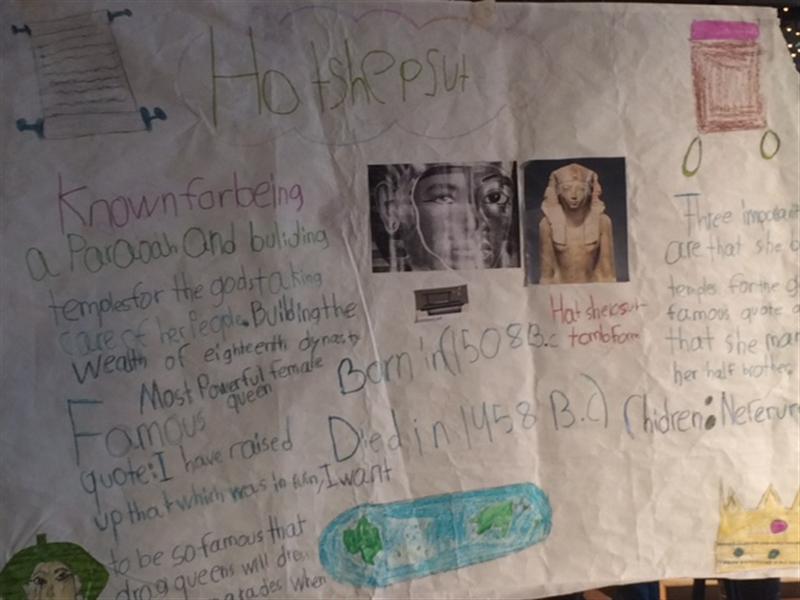 Hatshepsut
Known for being
a Paraoah And buliding
temples for the gods taking
care of her People. Building the
wealth of eighteenth dynasty
Most Powerful female
queen
Famous
quote: I have raised
up that which was in ruin, I want
to be so famous that
drag queens will dress
when
Hatshepsut
tomb from
Born in (1508 B.c
Died in 1458 B.C)
Chidren: Neferur
Three importan
are that she b
temples for the g
famous quote a
that she mar
her half brother